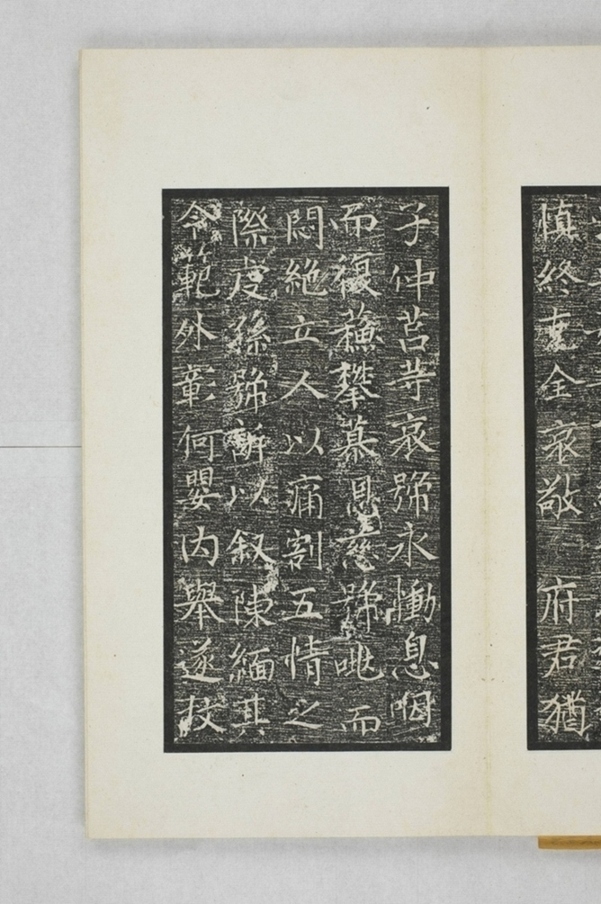 慎終克全哀敬 府君猶
子仲莒等哀號永慟息咽
而復蘇攀慕恩慈號咷而
悶絕立人以痛割五情之
際虔孫號訴以叙陳緬其
令範外彰何嬰内舉遂杖